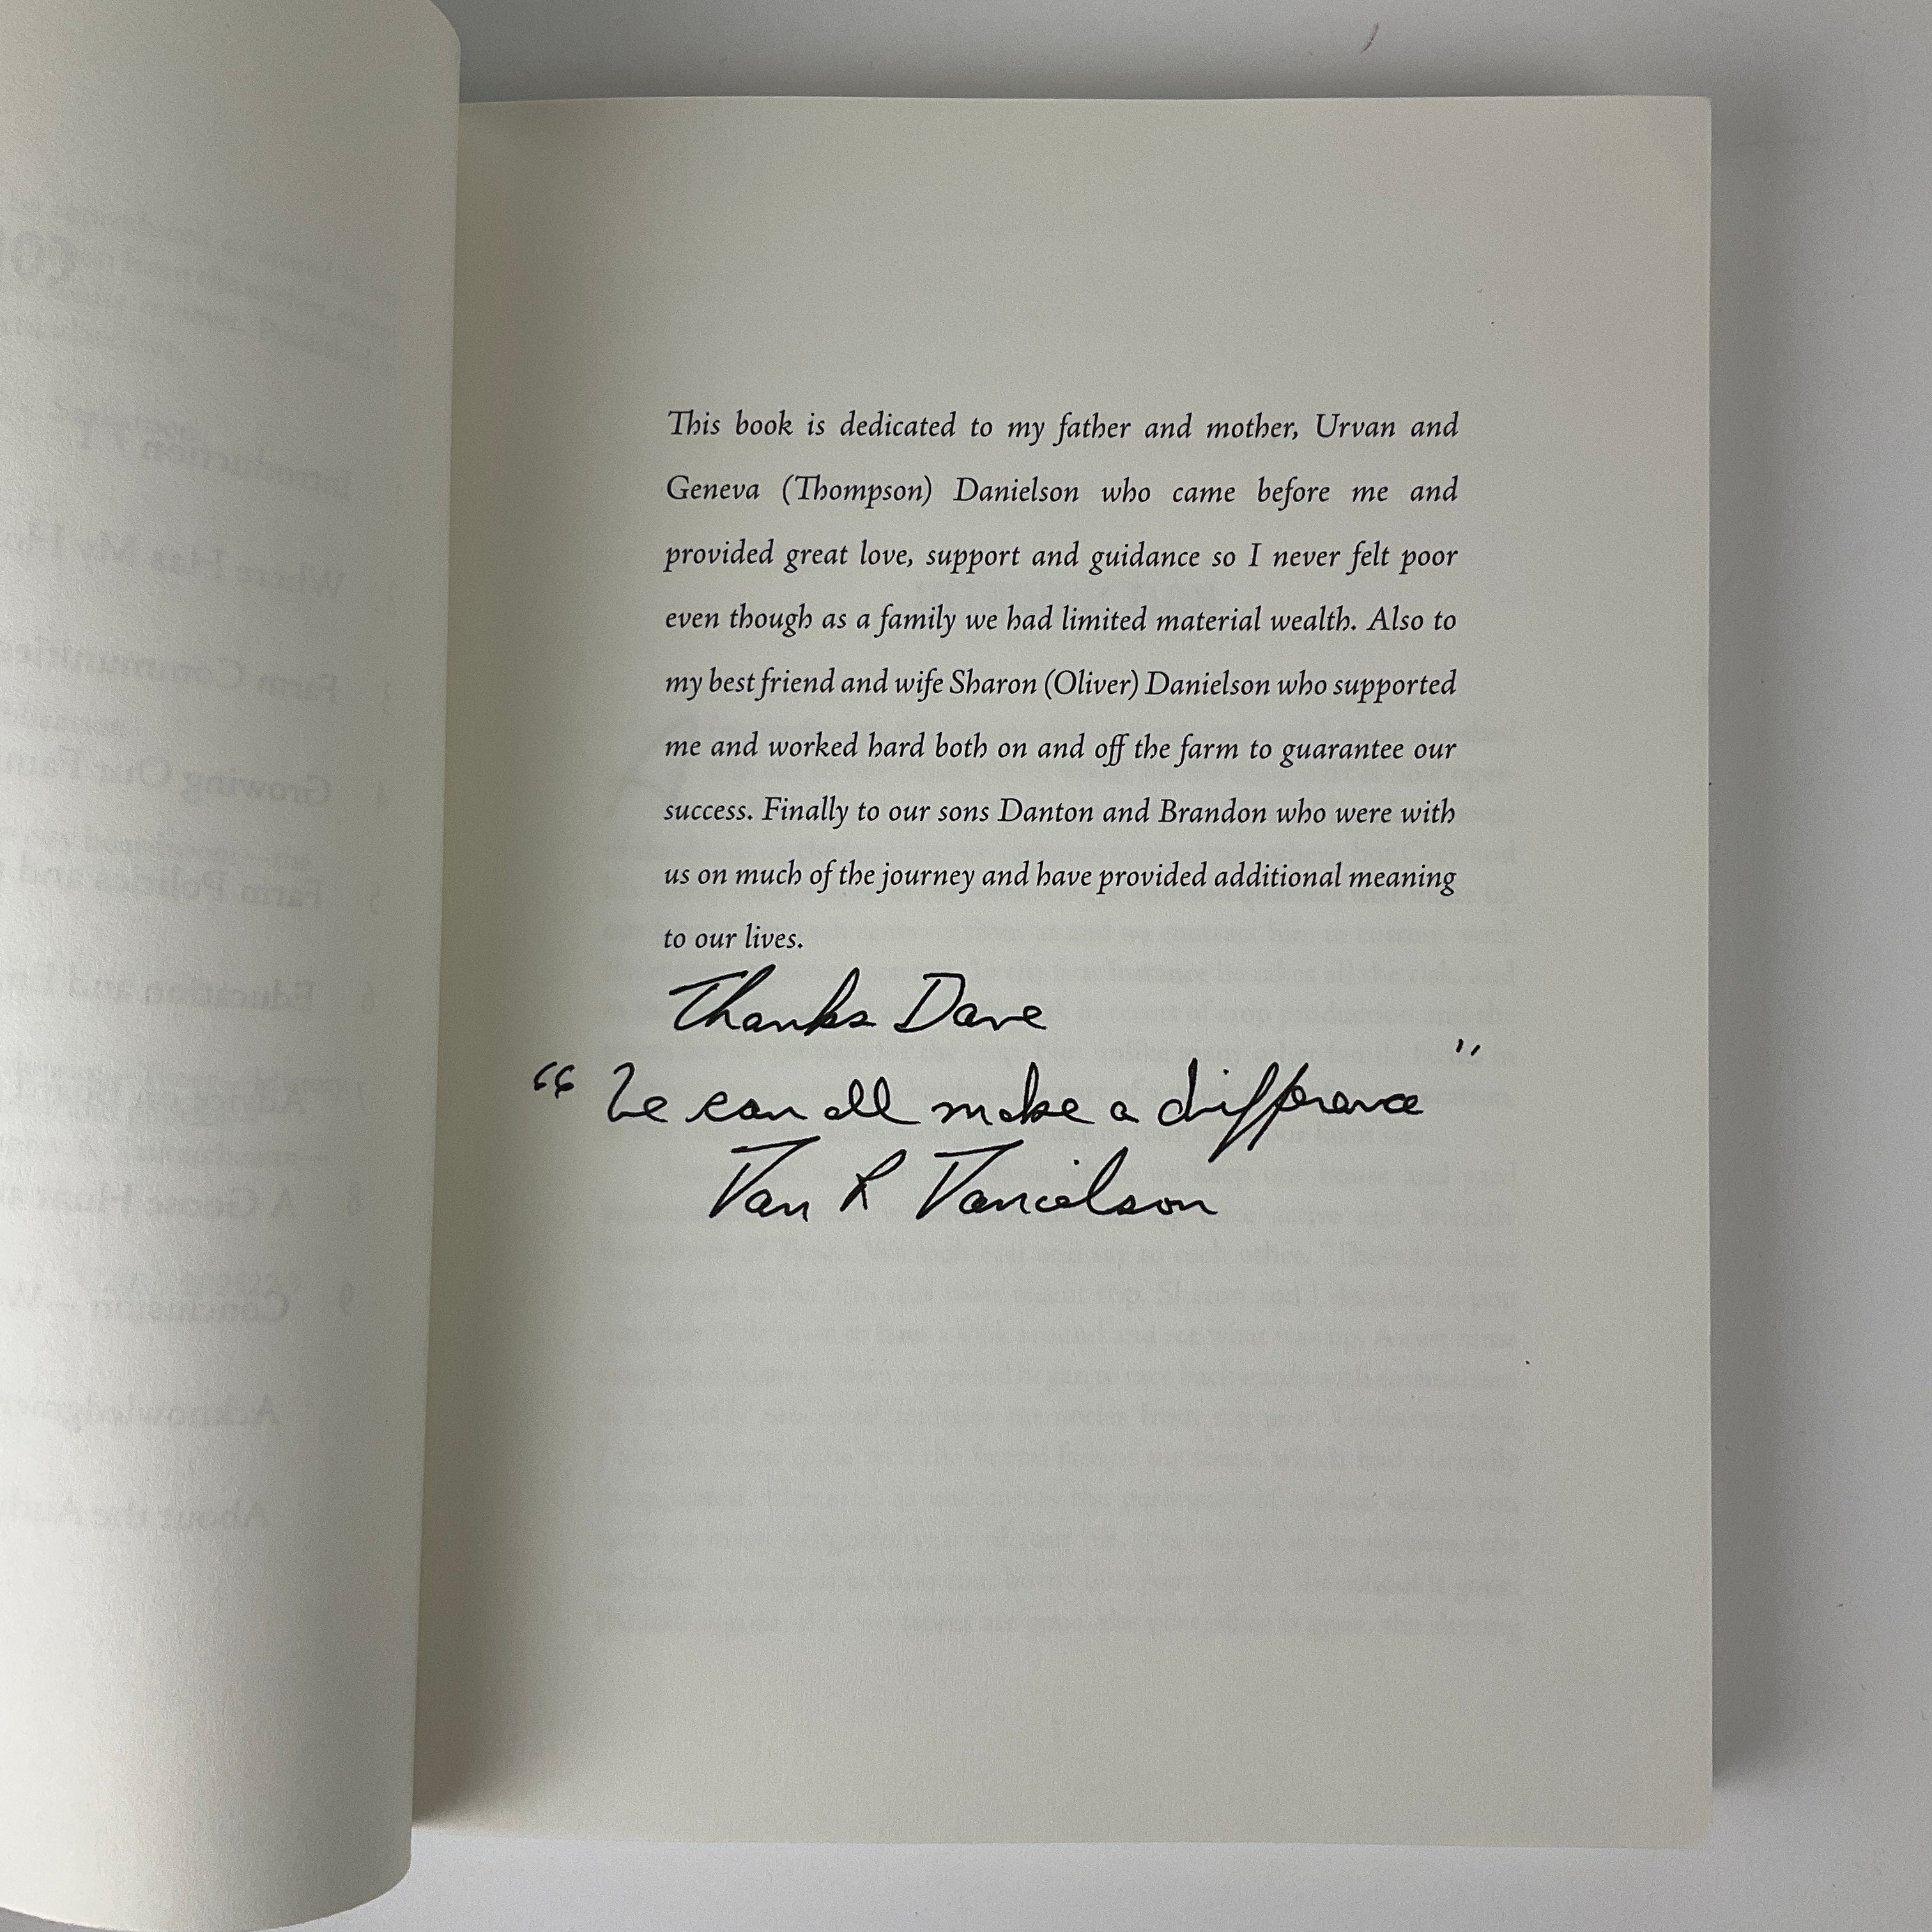 This book is dedicated to my father and mother, Urvan and
Geneva (Thompson) Danielson who came before me and
provided great love, support and guidance so I never felt poor
even though as a family we had limited material wealth. Also to
my best friend and wife Sharon (Oliver) Danielson who supported
me and worked hard both on and off the farm to guarantee our
success. Finally to our sons Danton and Brandon who were with
us on much of the journey and have provided additional meaning
to our lives.
Thanks Dave
"We can all make a difference"
Van R Danielson